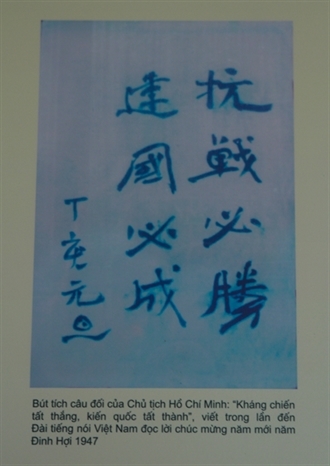 抗戦必勝
建國必成
丁亥元旦
Bút tích câu đối của Chủ tịch Hồ Chí Minh: “Kháng chiến
tất thắng, kiến quốc tất thành”, viết trong lần đến
Đài tiếng nói Việt Nam đọc lời chúc mừng năm mới năm
Đinh Hợi 1947